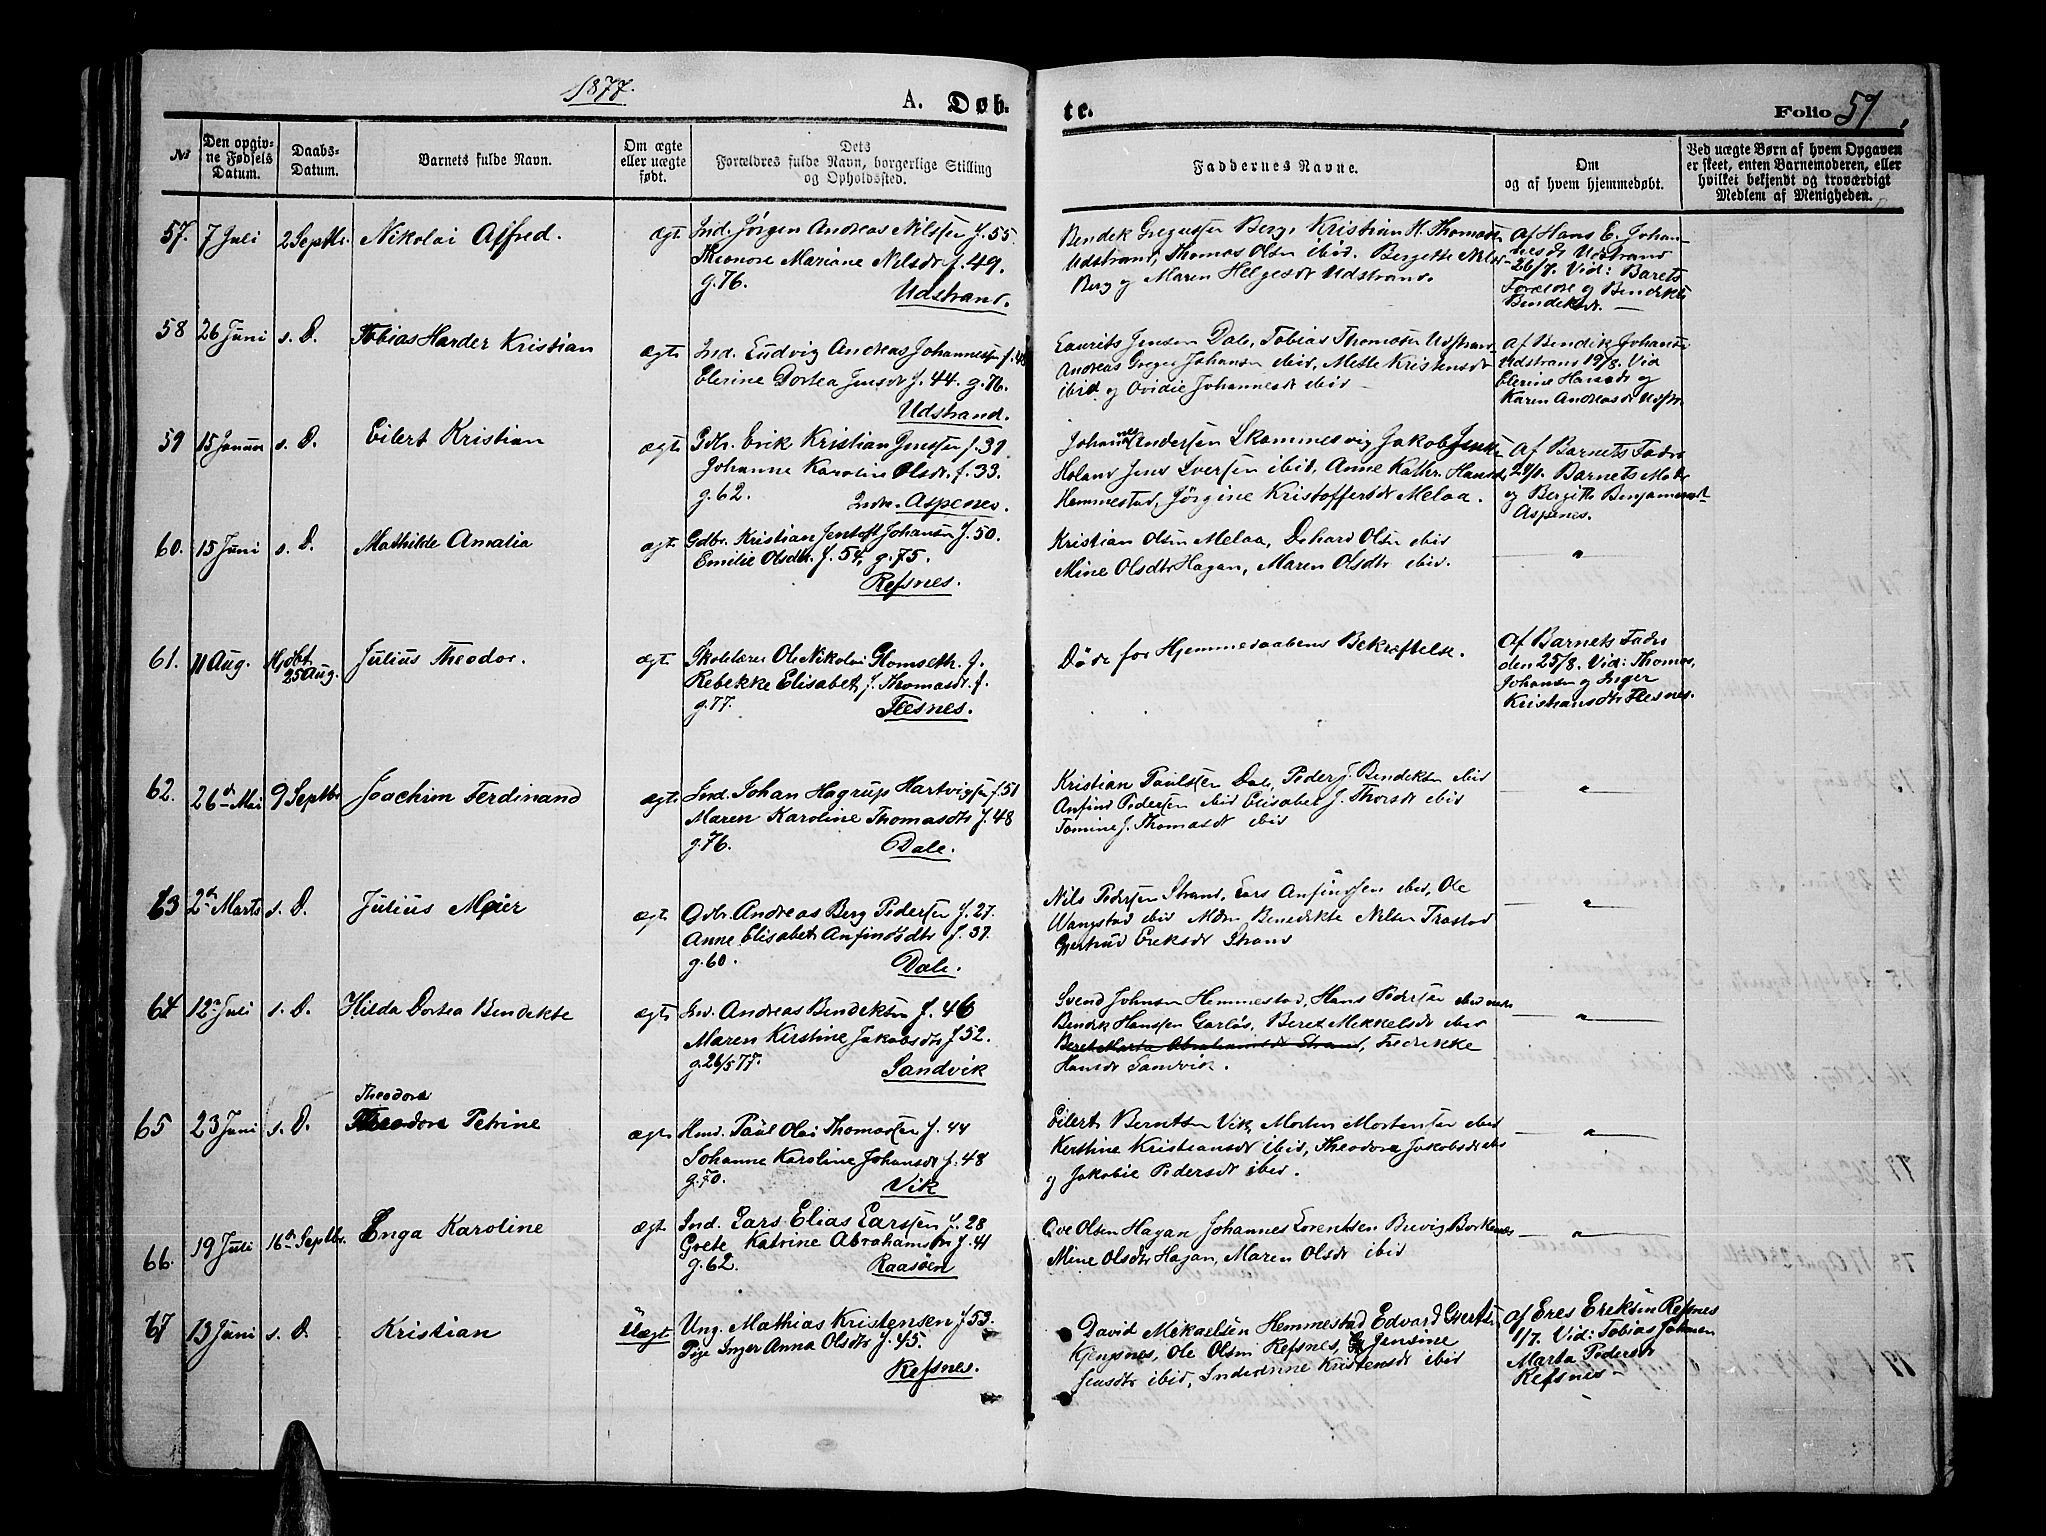 1877.
A. Døb-
te.
Folio 59.
№
Den opgiv-
ne Fødsels
Datum.
Daabs-
Datum.
Barnets fulde Navn.
Om ægte
eller uægte
født.
Dets
Forældres fulde Navn, borgerlige Stilling
og Opholdssted.
Faddernes Navne.
Om
og af hvem hjemmedøbt.
Ved uægte Børn af hvem Opgaven
er skeet, enten Barnemoderen, eller
hvilket bekjendt og troværdigt
Medlem af Menigheden.
57. 7 Juli 2 Septbr. Nikolai Alfred. ægt. Ind. Jörgen Andreas Nilssen f. 55.
Eleonore Mariane Nilsdr f. 49.
g. 76. Udstrand.
Bendik Gregussen Berg, Kristian H. Thomassen
Udstrand, Thomas Olsen ibid. Bergette Nilsdr
Berg og Maren Helgesdr Udstrand.
Af Hans E. Johan-
nesdr Udstrand
26/7. Vid: Barets
Forældre og Bendikte
Bendiksdr.
58 26 Juni s. D. Tobias Harder Kristian ægt. Ind. Ludvig Andreas Johannessen f. 48
Elerine Dortea Jensdr f. 44. g. 76.
Udstrand.
Laurits Jensen Dale, Tobias Thomasen Udstrand
Andreas Greger Johansen ibid, Mette Kristensdr
ibid og Ovidie Johannesdr ibid
Af Bendik Johans
Udstrand 19/8. Vid
Elerine Hansdr og
Karen Andreasdr Udstr.
59 15 Januar s. D. Eilert Kristian ægt. Gdbr. Erik Kristian Jenssen f. 39
Johanne Karoline Olsdr. f. 33.
g. 62. Indre. Aspenes.
Johannes Andersen Skammesvig Jakob
Holand Jens Iversen ibid, Anne Kathr. Hansdr
Hemmestad, Jörgine Kristoffersdr Melaa.
Af Barnets Fader
29/1. Barnets Moder
og Bergitte Benjaminsdr
Aspenes.
60. 15 Juni s. D. Mathilde Amalia ægt. Gdbr. Kristian Jentoft Johansen f. 50.
Emilie Olsdtr. f. 54, g. 75.
Refsnes.
Kristian Olsen Melaa, Dehard Olsen ibid
Mine Olsdtr Hagan, Maren Olsdtr ibid.
— " —
61. 11 Aug. Hjdbt. 25 Aug. Julius Theodor. ægt. Skolelærer Ole Nikolai Glomseth. f.
Rebekke Elisabet f. Thomasdr. f.
g. 77. Flesnes.
Døde før Hjemmedaabens Bekræftelse.
Af Barnets Fader
den 25/8. Vid: Thomas
Johansen og Inger
Kristiansdtr Flesnes.
62. 26de Mai 9 Septbr Joachim Ferdinand ægt. Ind. Johan Hagrup Hartvigsen f. 51
Maren Karoline Thomasdtr f. 48
g. 76. Dale.
Kristian Paulsen Dale, Peder J. Bendiksen ibid
Anfind Pedersen ibid Elisabet J. Thorsdr ibid
Tomine J. Thomasdr ibid
— " —
63 2den Marts s. D. Julius Meier ægt. Gdbr. Andreas Berg Pedersen f. 27.
Anne Elisabet Anfindsdtr f. 37.
g. 60. Dale.
Nils Pedersen Strand, Lars Anfindsen ibid, Ole
Wangstad ibid Benedikte Nilsen Trastad
Gjertrud Eriksdr Strand
— " —
64 12te Juli s. D. Hilda Dortea Bendikte ægt. Ind. Andreas Bendiksen f. 46
Maren Kirstine Jakobsdtr f 52.
g. 26/5 77. Sandvik
Svend Johnsen Hemmestad, Hans Pedersen ibid
Bendik Hanssen Garlös, Beret Mikkelsdr ibid
Beret Marta Abrahamsdr Strand, Fredrikke
Hansdr Sandvik.
— " —
Theodora
65 23 Juni s. D. Theodora Petrine ægt. Hmd. Paul Olai Thomassen f. 44
Johanne Karoline Johansdr f. 48
g. 70. Vik
Eilert Berntsen Vik, Morten Mortensen ibid
Kerstine Kristiansdr ibid, Theodora Jakobsdr ibid
og Jakobie Pedersdr ibid.
— " —
66. 19 Juli 16de Septbr. Enga Karoline ægt. Ind. Lars Elias Larssen f. 28
Grete Katrine Abrahamsdtr f. 41
g. 62. Raasöen
Ove Olsen Hagan Johannes Lorentsen Buvig Borkenæs
Mine Olsdtr Hagan, Maren Olsdr ibid
— " —
67 13 Juni s. D. Kristian Uægt. Ung. Mathias Kristensen f 53.
Pige Inger Anna Olsdtr f. 45.
Refsnes.
David Mikaelsen Hemmestad Edvard
Kjengsnes, Ole Olsen Refsnes, Jensine
Jensdtr ibid, Inderdine Kristensdr ibid
Af Eres Eriksen Refsnes
1/7. Vid: Tobias Johnsen
Marta Pedersdr
Refsnes